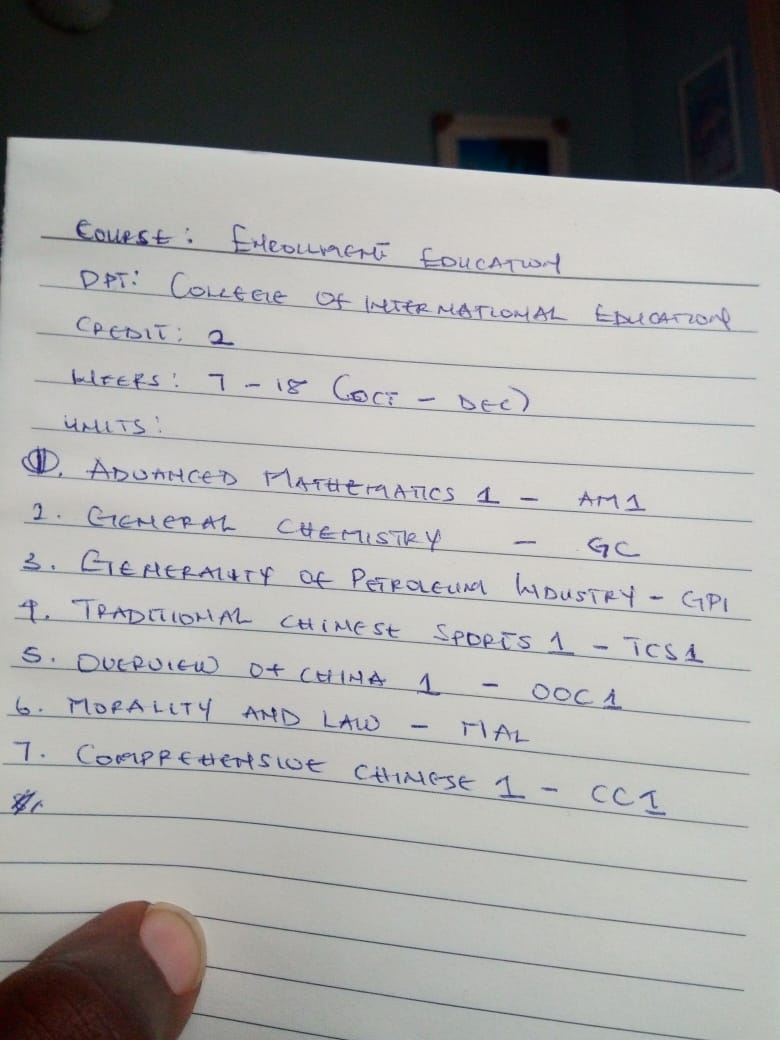 COURSE: ENROLLMENT EDUCATION
DPT: COLLEGE OF INTERNATIONAL EDUCATION
CREDIT: 2
WEEKS: 7 - 18 (OCT - DEC)
UNITS:
1. ADVANCED MATHEMATICS 1 - AM1
2. GENERAL CHEMISTRY - GC
3. GENERALITY OF PETROLEUM INDUSTRY - GPI
4. TRADITIONAL CHINESE SPORTS 1 - TCS1
5. OVERVIEW OF CHINA 1 - OOC1
6. MORALITY AND LAW - MAL
7. COMPREHENSIVE CHINESE 1 - CC1